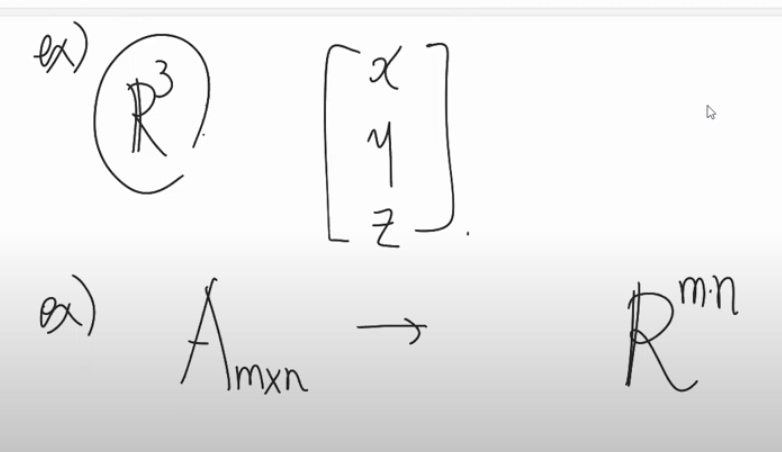 ex) ℝ³ [x y z].
ex) A_{m×n} → ℝ^{m·n}